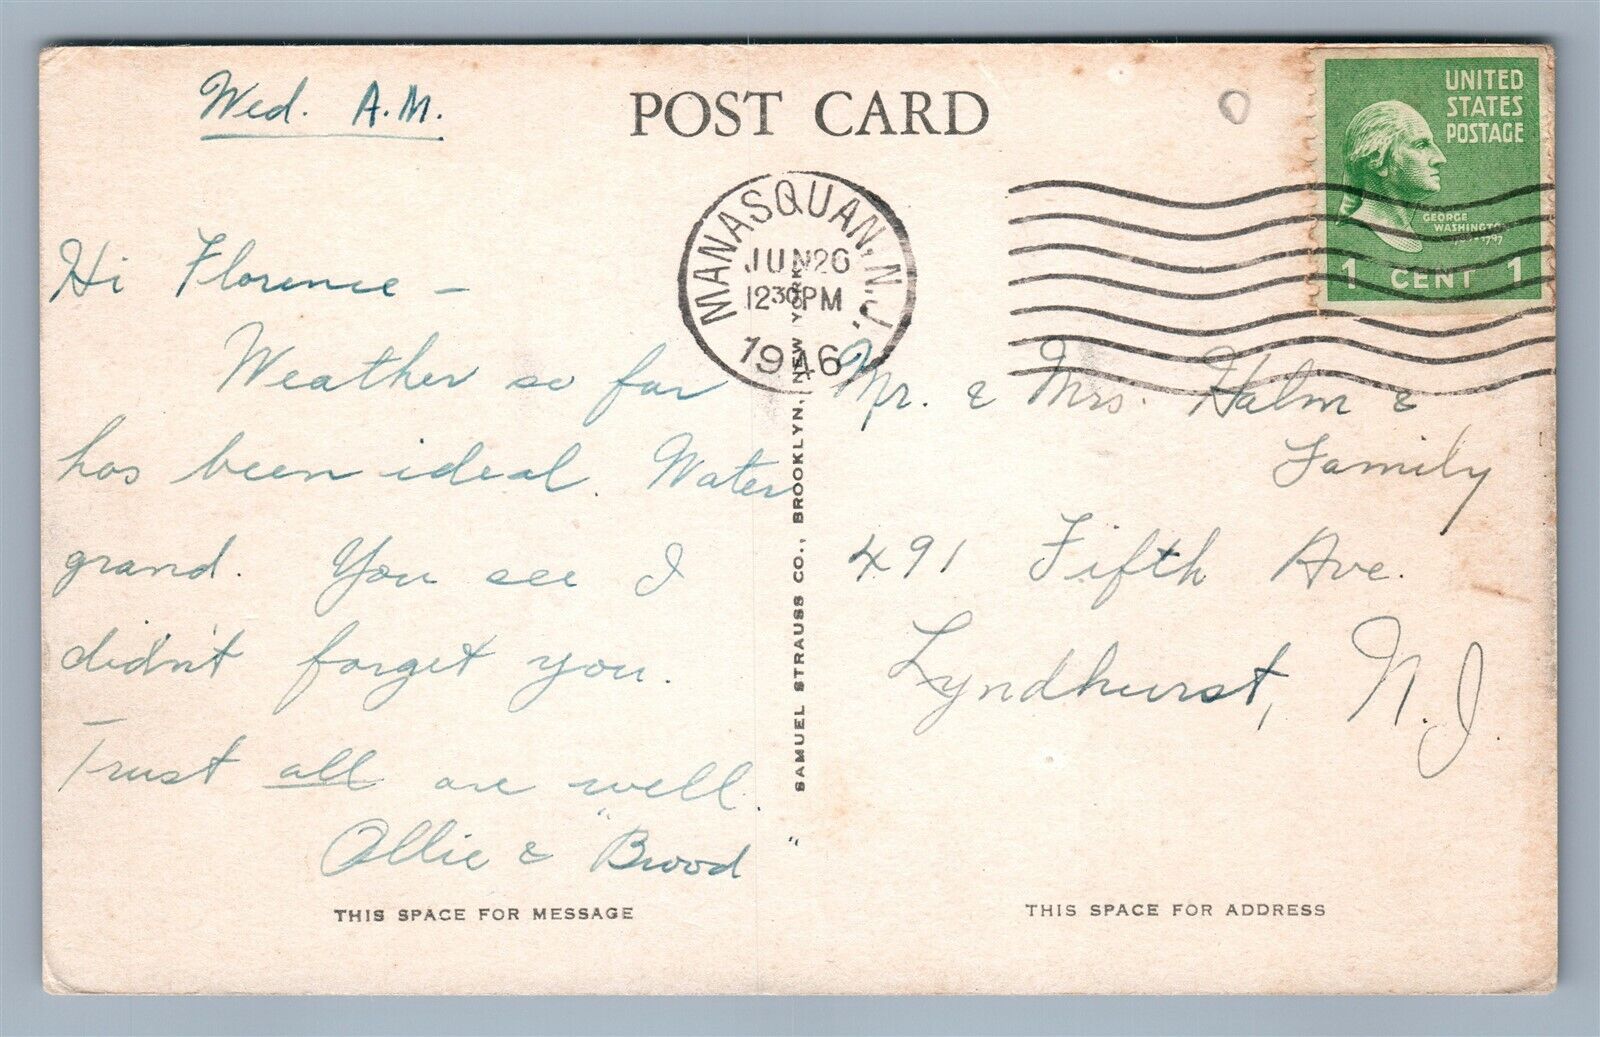 POST CARD
Wed. A.M.
Hi Florence -
Weather so far
has been ideal. Water
grand. You see I
didn't forget you.
Trust all are well.
Ollie & "Brood"
THIS SPACE FOR MESSAGE
SAMUEL STRAUSS CO., BROOKLYN, NEW YORK
MANASQUAN, N.J.
JUN 26
12 30 PM
1946
UNITED
STATES
POSTAGE
GEORGE
WASHINGTON
1 CENT 1
Mr. & Mrs. Halm &
Family
491 Fifth Ave.
Lyndhurst, N.J.
THIS SPACE FOR ADDRESS